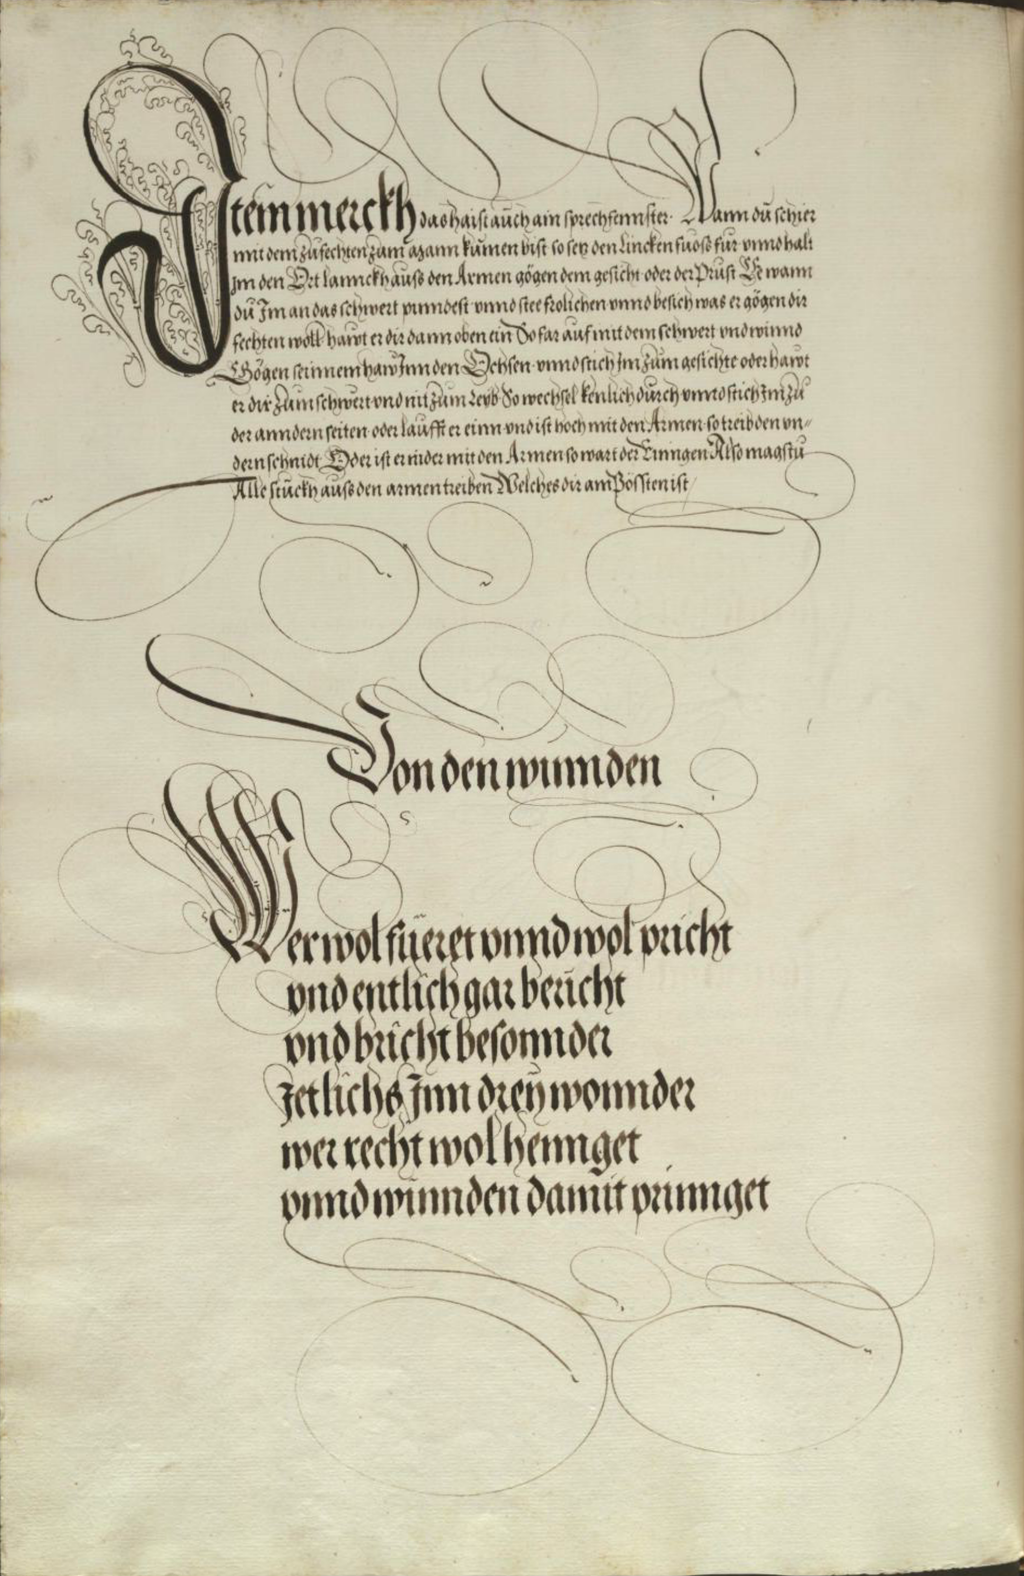 Item merckh das haist auch ain sprechfennster. Wann du schier
mit dem zufechten zam mann kumen bist so sey den lincken fuoß fur vnnd halt
Im den Ort lannckh auß den Armen gögen dem gesicht oder der Prust Ee wann
du Im an das schwert pinndest vnnd stee frolichen vnnd besich was er gögen dir
fechten woll hawt er dir dann oben ein So far auf mit dem schwert vnd winnd
Gögen seinnem haw Inn den Ochsen vnnd stich Im zum gesichte oder hawt
er dir zum schwert vnd nit zum Leyb So wechsel kenlich durch vnnd stich Im zu
der anndern seiten oder laufft er einn vnd ist hoch mit den Armen so treib den vn-
dern schnidt Oder ist er nider mit den Armen so wart der Rinngen Also magstu
Alle stuckh auß den armen treiben Welches dir am Bössten ist
Von den winnden
Wer wol fueret vnnd wol pricht
vnd entlich gar bericht
vnd bricht besonnder
Jetlichs Inn drey wonnder
wer recht wol hennget
vnnd winnden damit prinnget